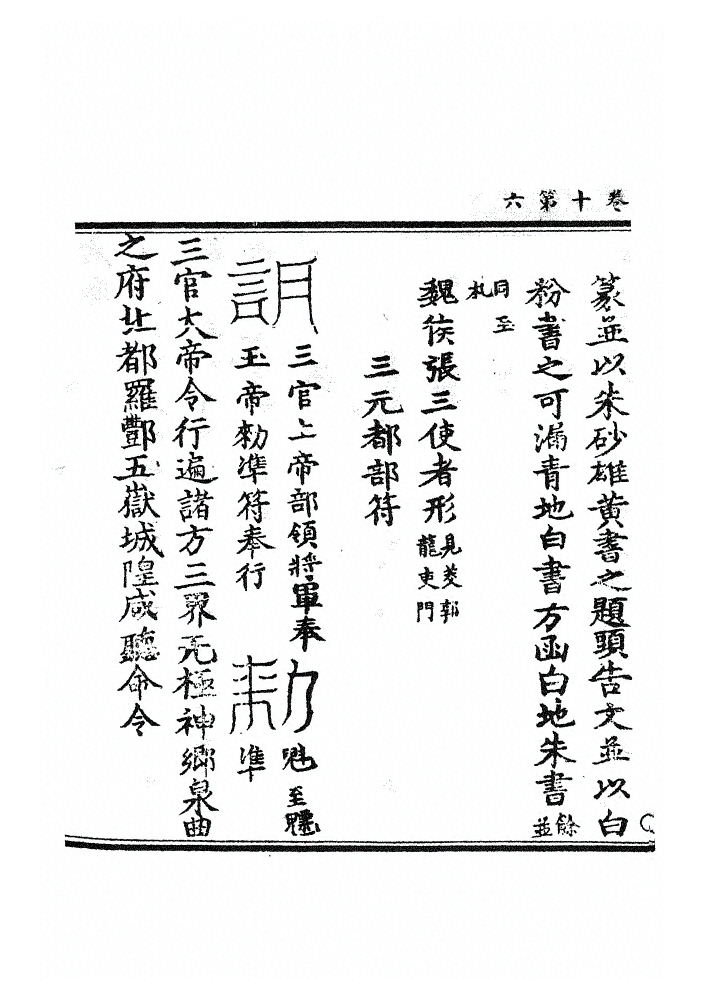 卷十第六
篆並以朱砂雄黃書之題頭告文並以白
粉書之可漏青地白書方函白地朱書餘並
同至札
魏侯張三使者形見茭郭龍吏門
三元都部符
三官上帝部領將軍奉 魁至
玉帝勑準符奉行 準
三官大帝令行遍諸方三界无極神鄉泉曲
之府北都羅酆五嶽城隍咸聽命令